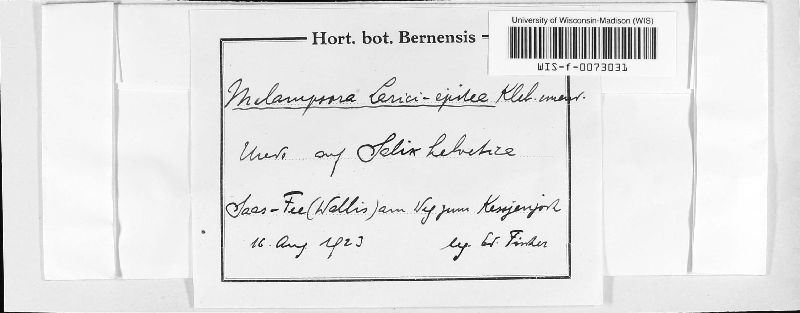 University of Wisconsin-Madison (WIS)
WIS-f-0073031
Hort. bot. Bernensis
Melampsora Larici-epitea Kleb. emend.
Uredo auf Salix helvetica
Saas-Fee (Wallis) am Weg zum Kessjenjoch
16. Aug 1923 leg. Ed. Fischer